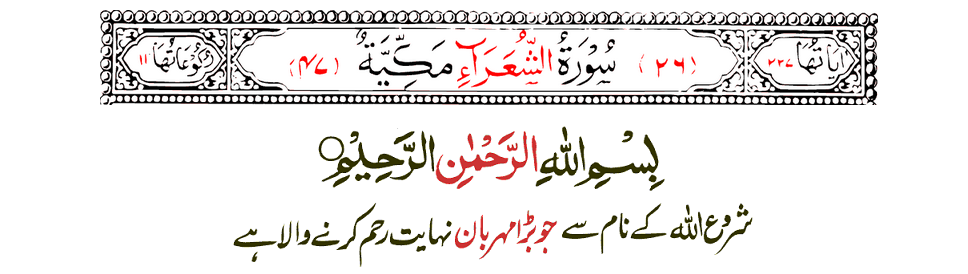 اٰیَاتُهَا ۲۲۷ (۲۶) سُوْرَةُ الشُّعَرَاءِ مَكِّيَّةٌ (۴۷) رُكُوْعَاتُهَا ۱۱
بِسْمِ اللّٰهِ الرَّحْمٰنِ الرَّحِیْمِ۝
شروع اللہ کے نام سے جو بڑا مہربان نہایت رحم کرنے والا ہے